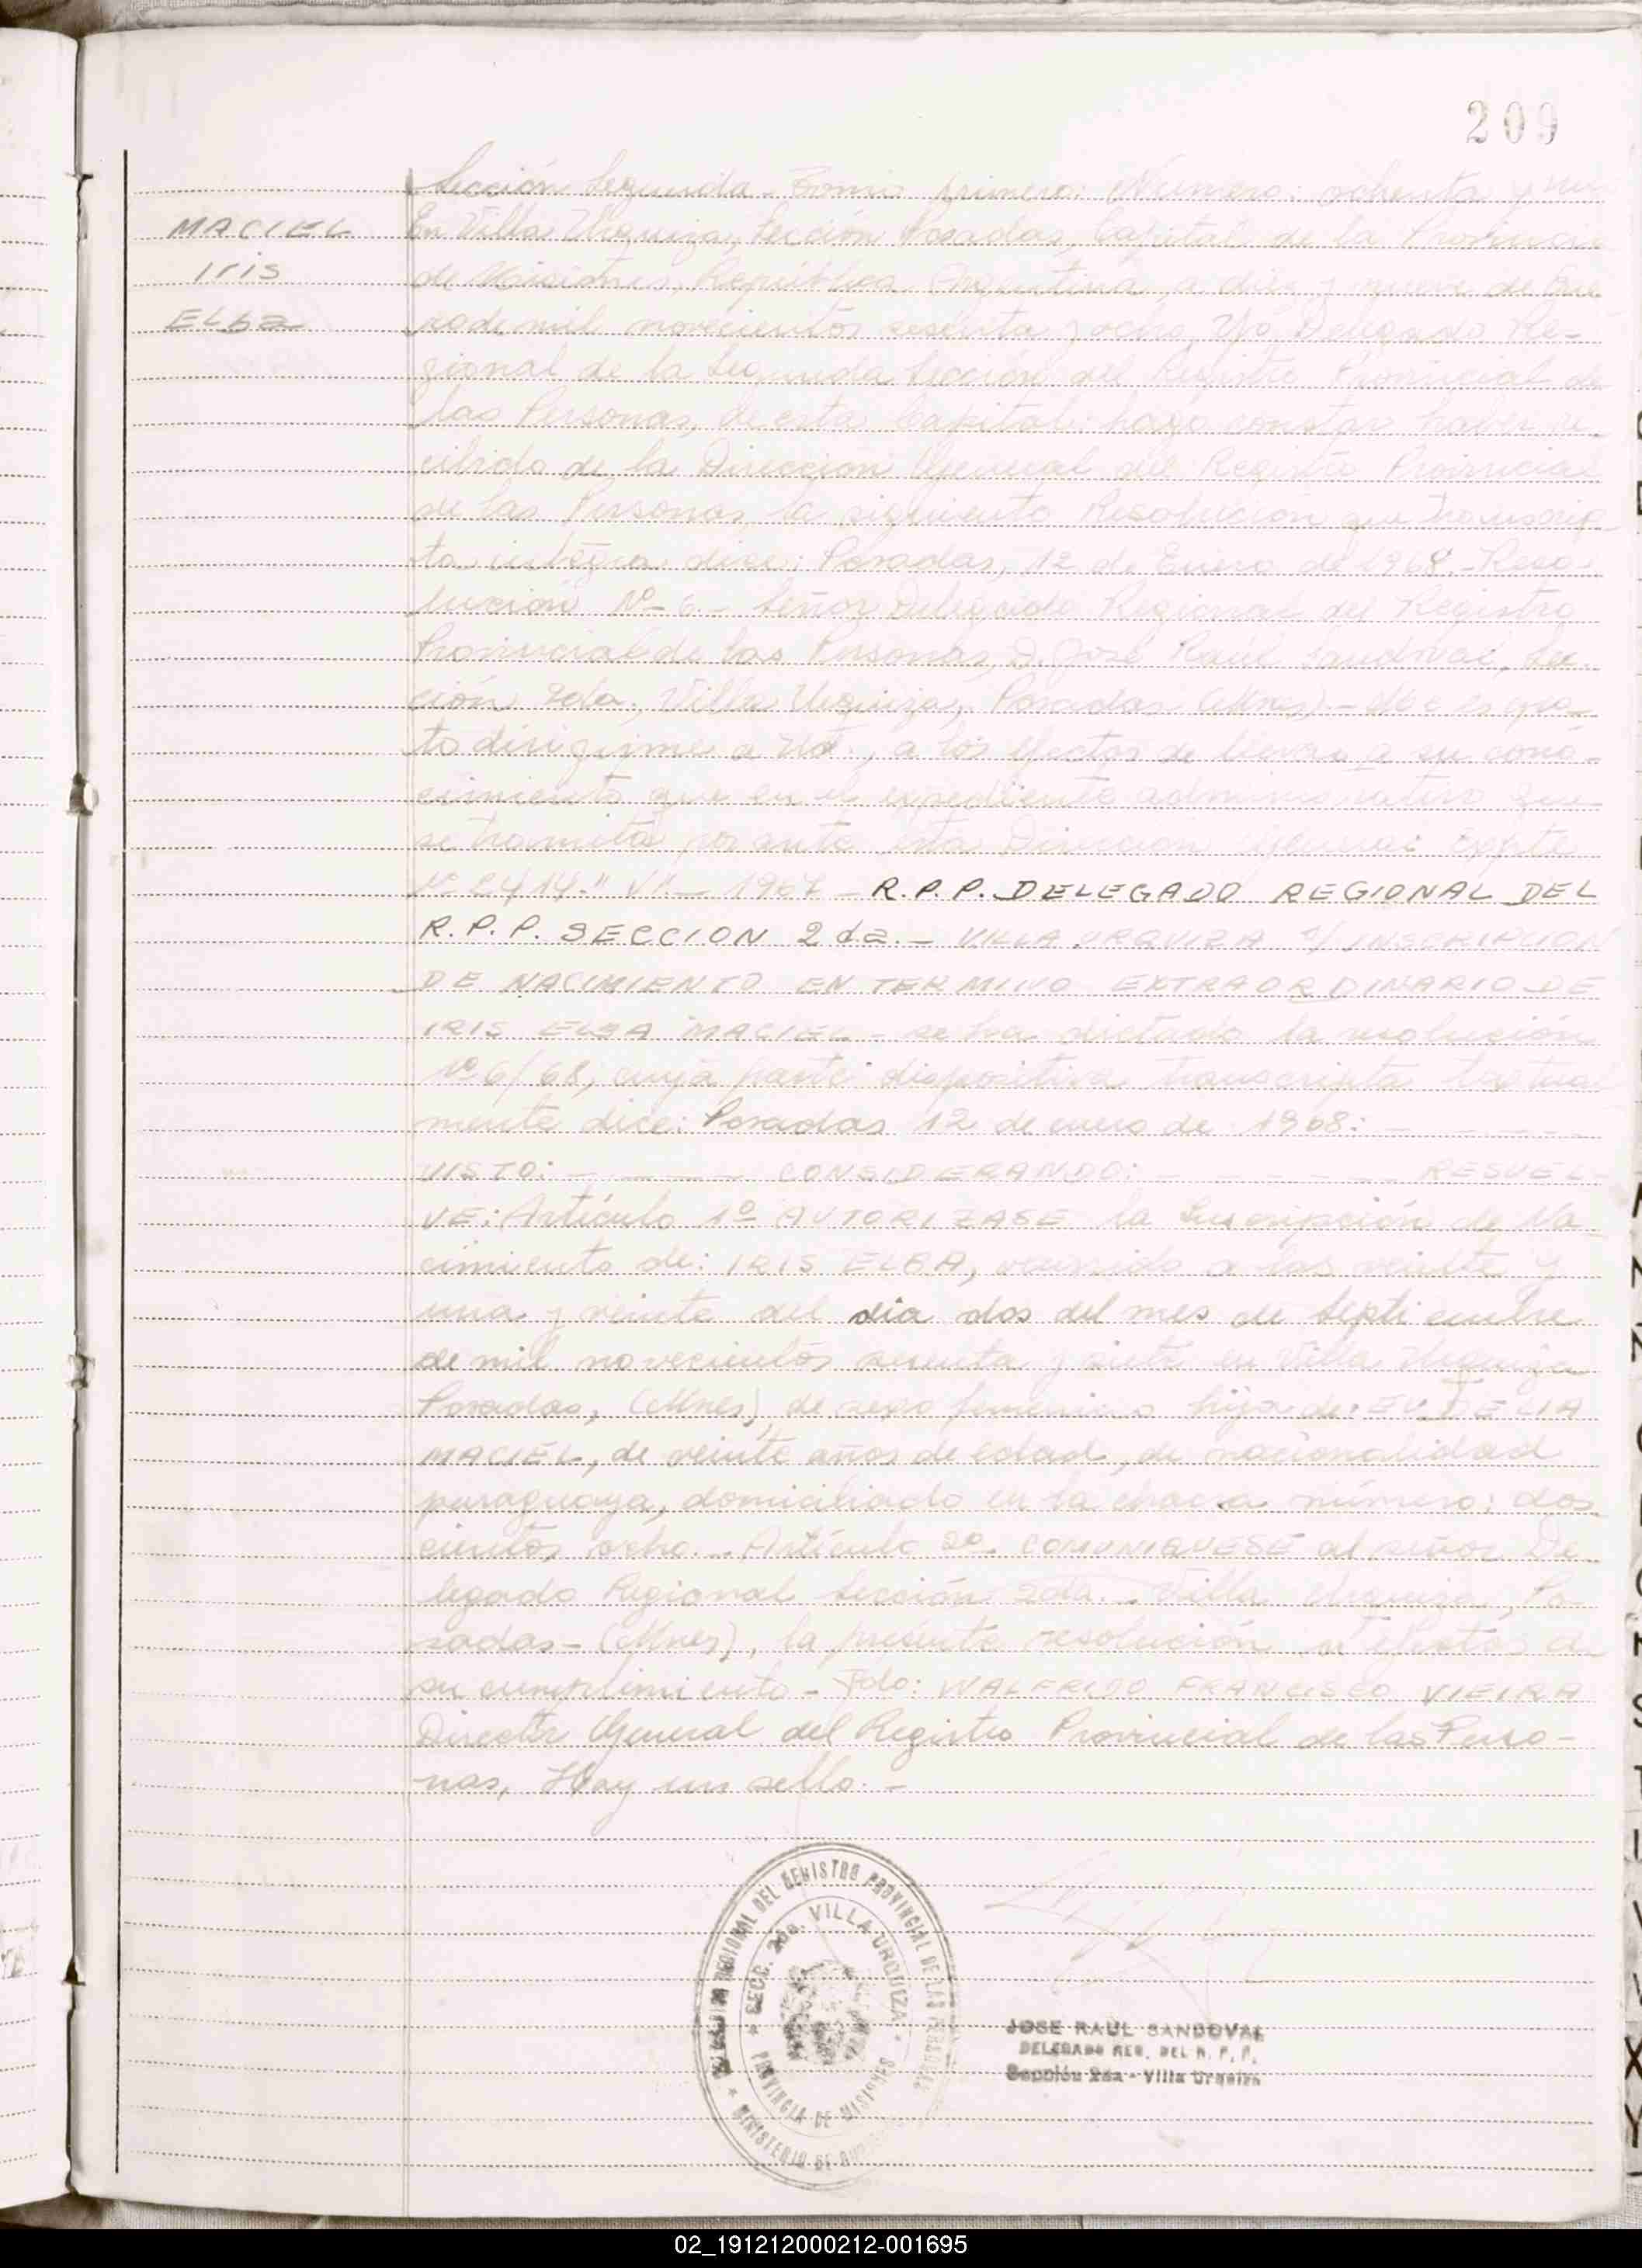 209
MACIEL
Iris
Elba
Sección Segunda - Tomo primero: Número: ochenta y un
En Villa Urquiza, Sección Posadas, Capital de la Provincia
de Misiones, República Argentina, a diez y nueve de Ene
ro de mil novecientos sesenta y ocho, Yo Delegado Re-
gional de la Segunda Sección del Registro Provincial de
las Personas, de esta Capital: hago constar haber re-
cibido de la Dirección General del Registro Provincial
de las Personas, la siguiente Resolución que transcrip-
ta integra dice: Posadas, 12 de Enero de 1968.- Reso-
lución Nº- 6.- Señor Delegado Regional del Registro
Provincial de las Personas, D. José Raúl Sandoval, Sec-
ción 2da., Villa Urquiza, Posadas (Mnes).- Me es gra-
to dirigirme a Ud., a los efectos de llevar a su cono-
cimiento que en el expediente administrativo que
se tramita por ante esta Dirección General: Expte
Nº 2414-"V".- 1967 - R.P.P. DELEGADO REGIONAL DEL
R.P.P. SECCION 2da.- VILLA URQUIZA s/ INSCRIPCION
DE NACIMIENTO EN TERMINO EXTRAORDINARIO DE
IRIS ELBA MACIEL - se ha dictado la resolución
Nº 6/68, cuya parte dispositiva transcripta textual
mente dice: Posadas 12 de enero de 1968: - - - - -
VISTO: - - - - - CONSIDERANDO: - - - - - - RESUEL
VE: Artículo 1º AUTORIZASE la Inscripción de Na
cimiento de: IRIS ELBA, ocurrido a las veinte y
una y veinte del dia dos del mes de septiembre
de mil novecientos sesenta y siete en Villa Urquiza
Posadas, (Mnes), de sexo femenino hija de:
MACIEL, de veinte años de edad, de nacionalidad
paraguaya, domiciliado en la chacra número: dos
cientos ocho.- Artículo 2º. COMUNIQUESE al señor De
legado Regional Sección 2da.- Villa Urquiza, Po
sadas- (Mnes), la presente resolución a efectos de
su cumplimiento - Fdo: WALFRIDO FRANCISCO VIEIRA
Director General del Registro Provincial de las Perso-
nas, Hay un sello.-
DELEGACION REGIONAL DEL REGISTRO PROVINCIAL DE LAS PERSONAS
SECC. 2da. VILLA URQUIZA
PROVINCIA DE MISIONES
MINISTERIO DE
JOSE RAUL SANDOVAL
DELEGADO REG. DEL R. P. P.
Sección 2da - Villa Urquiza
02_191212000212-001695